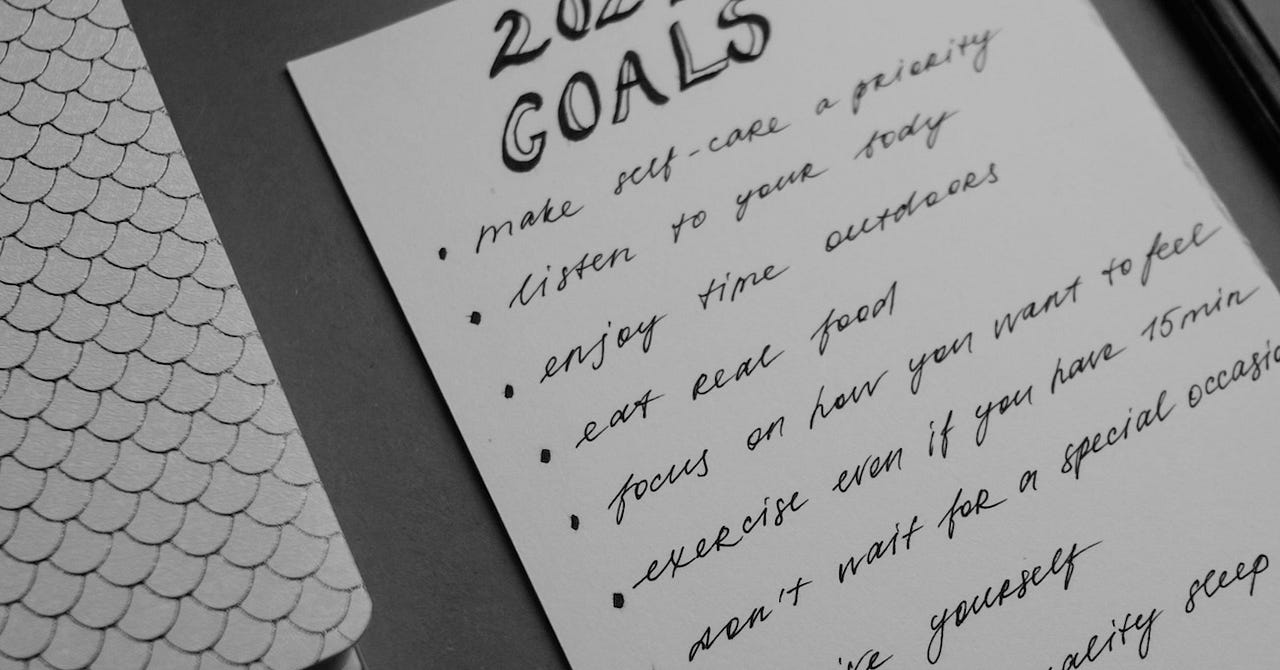 GOALS
make self-care a priority
listen to your body
enjoy time outdoors
eat real food
focus on how you want to feel
exercise even if you have 15min
don't wait for a special
yourself
sleep